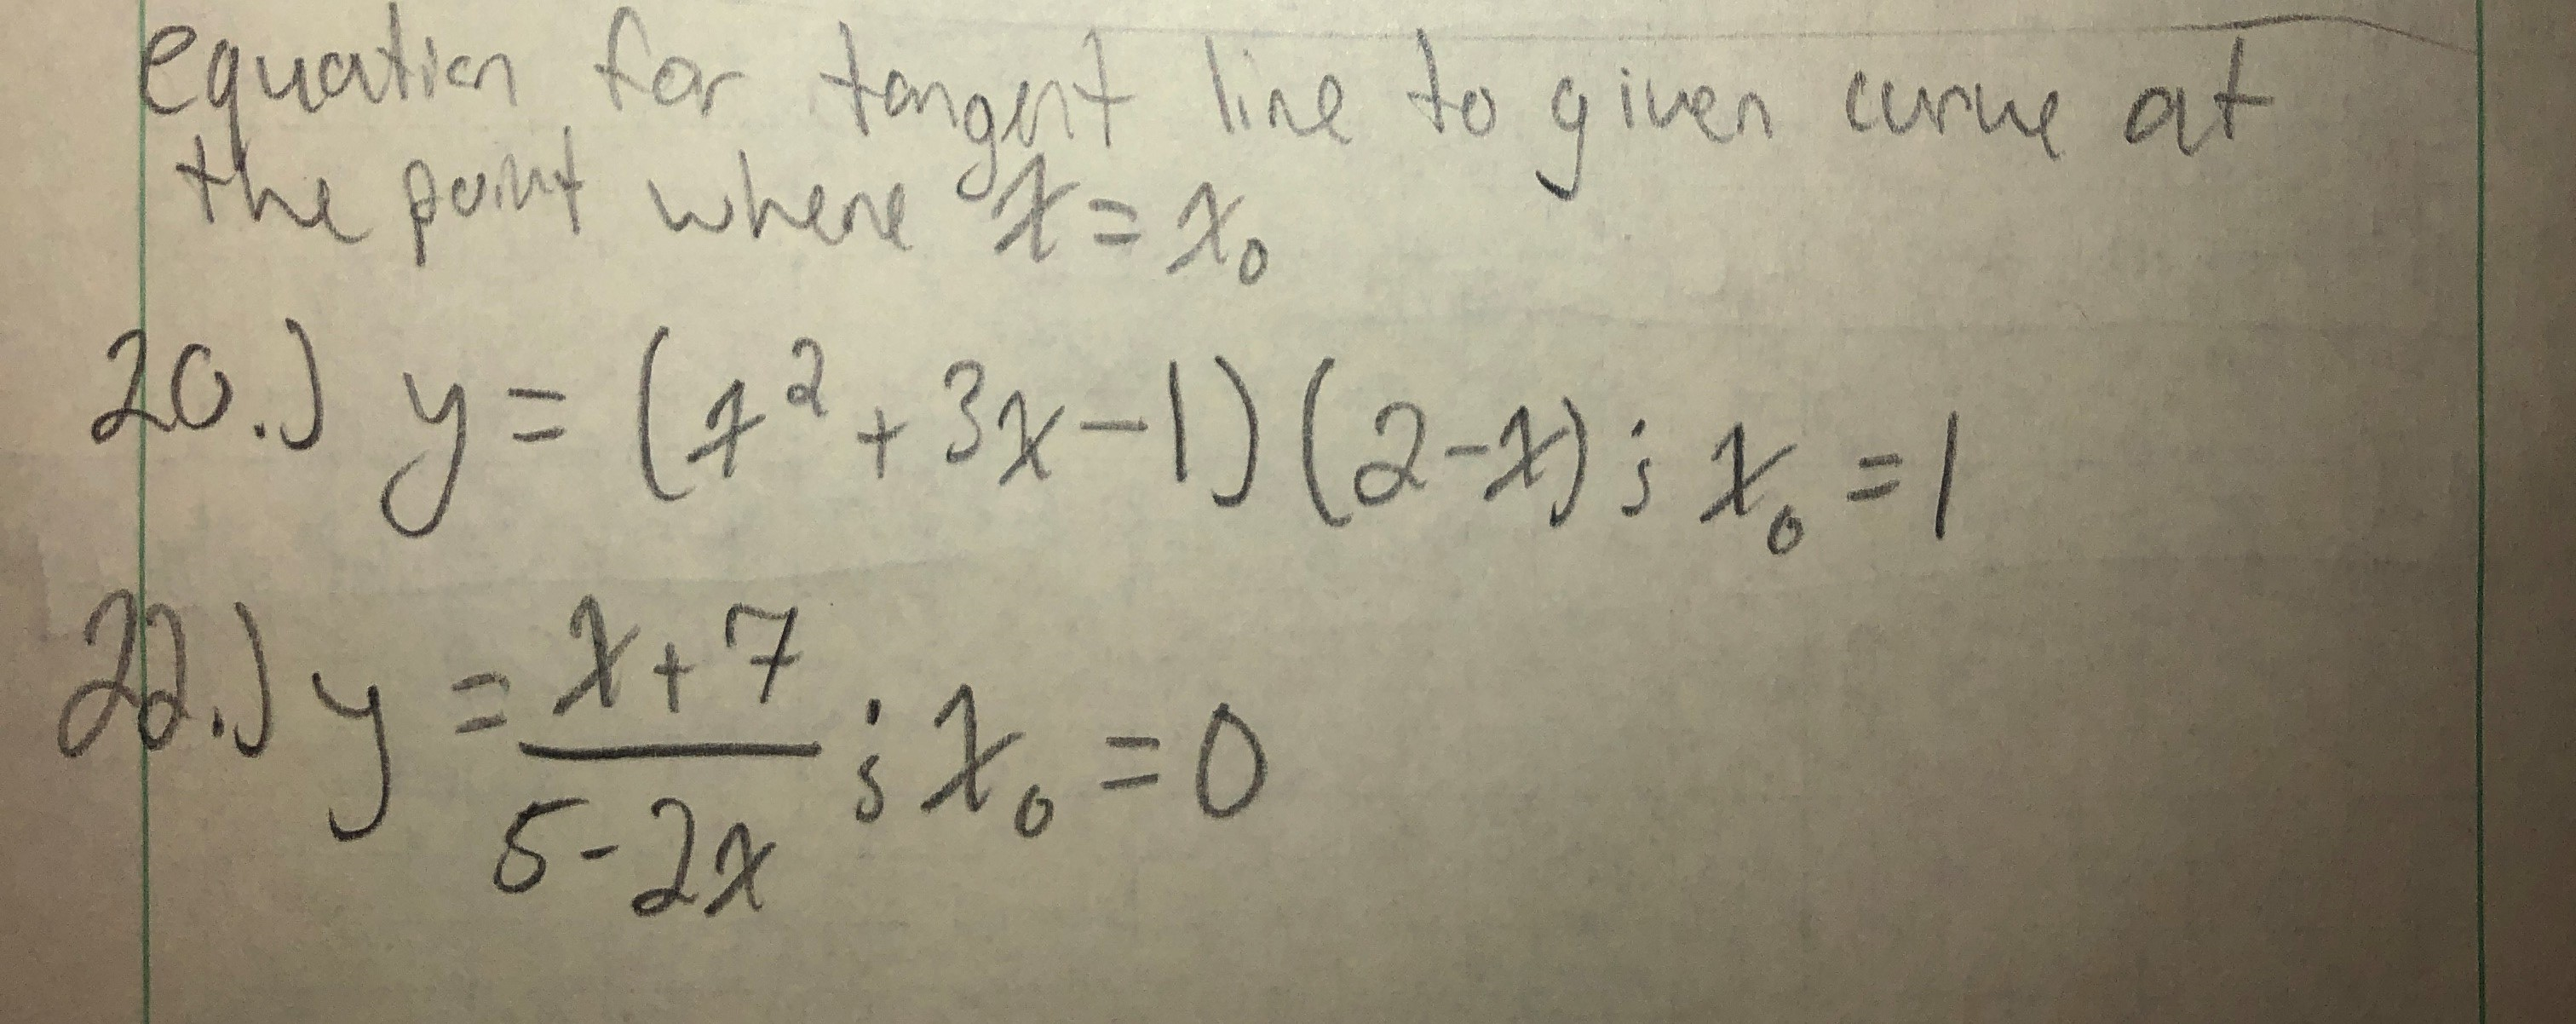 equation for tangent line to given curve at
the point where x = x₀
20.) y = (x² + 3x - 1)(2 - x); x₀ = 1
22.) y = (x + 7)/(5 - 2x); x₀ = 0